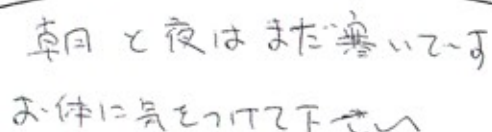 朝と夜はまだ寒いです
お体に気をつけて下さい